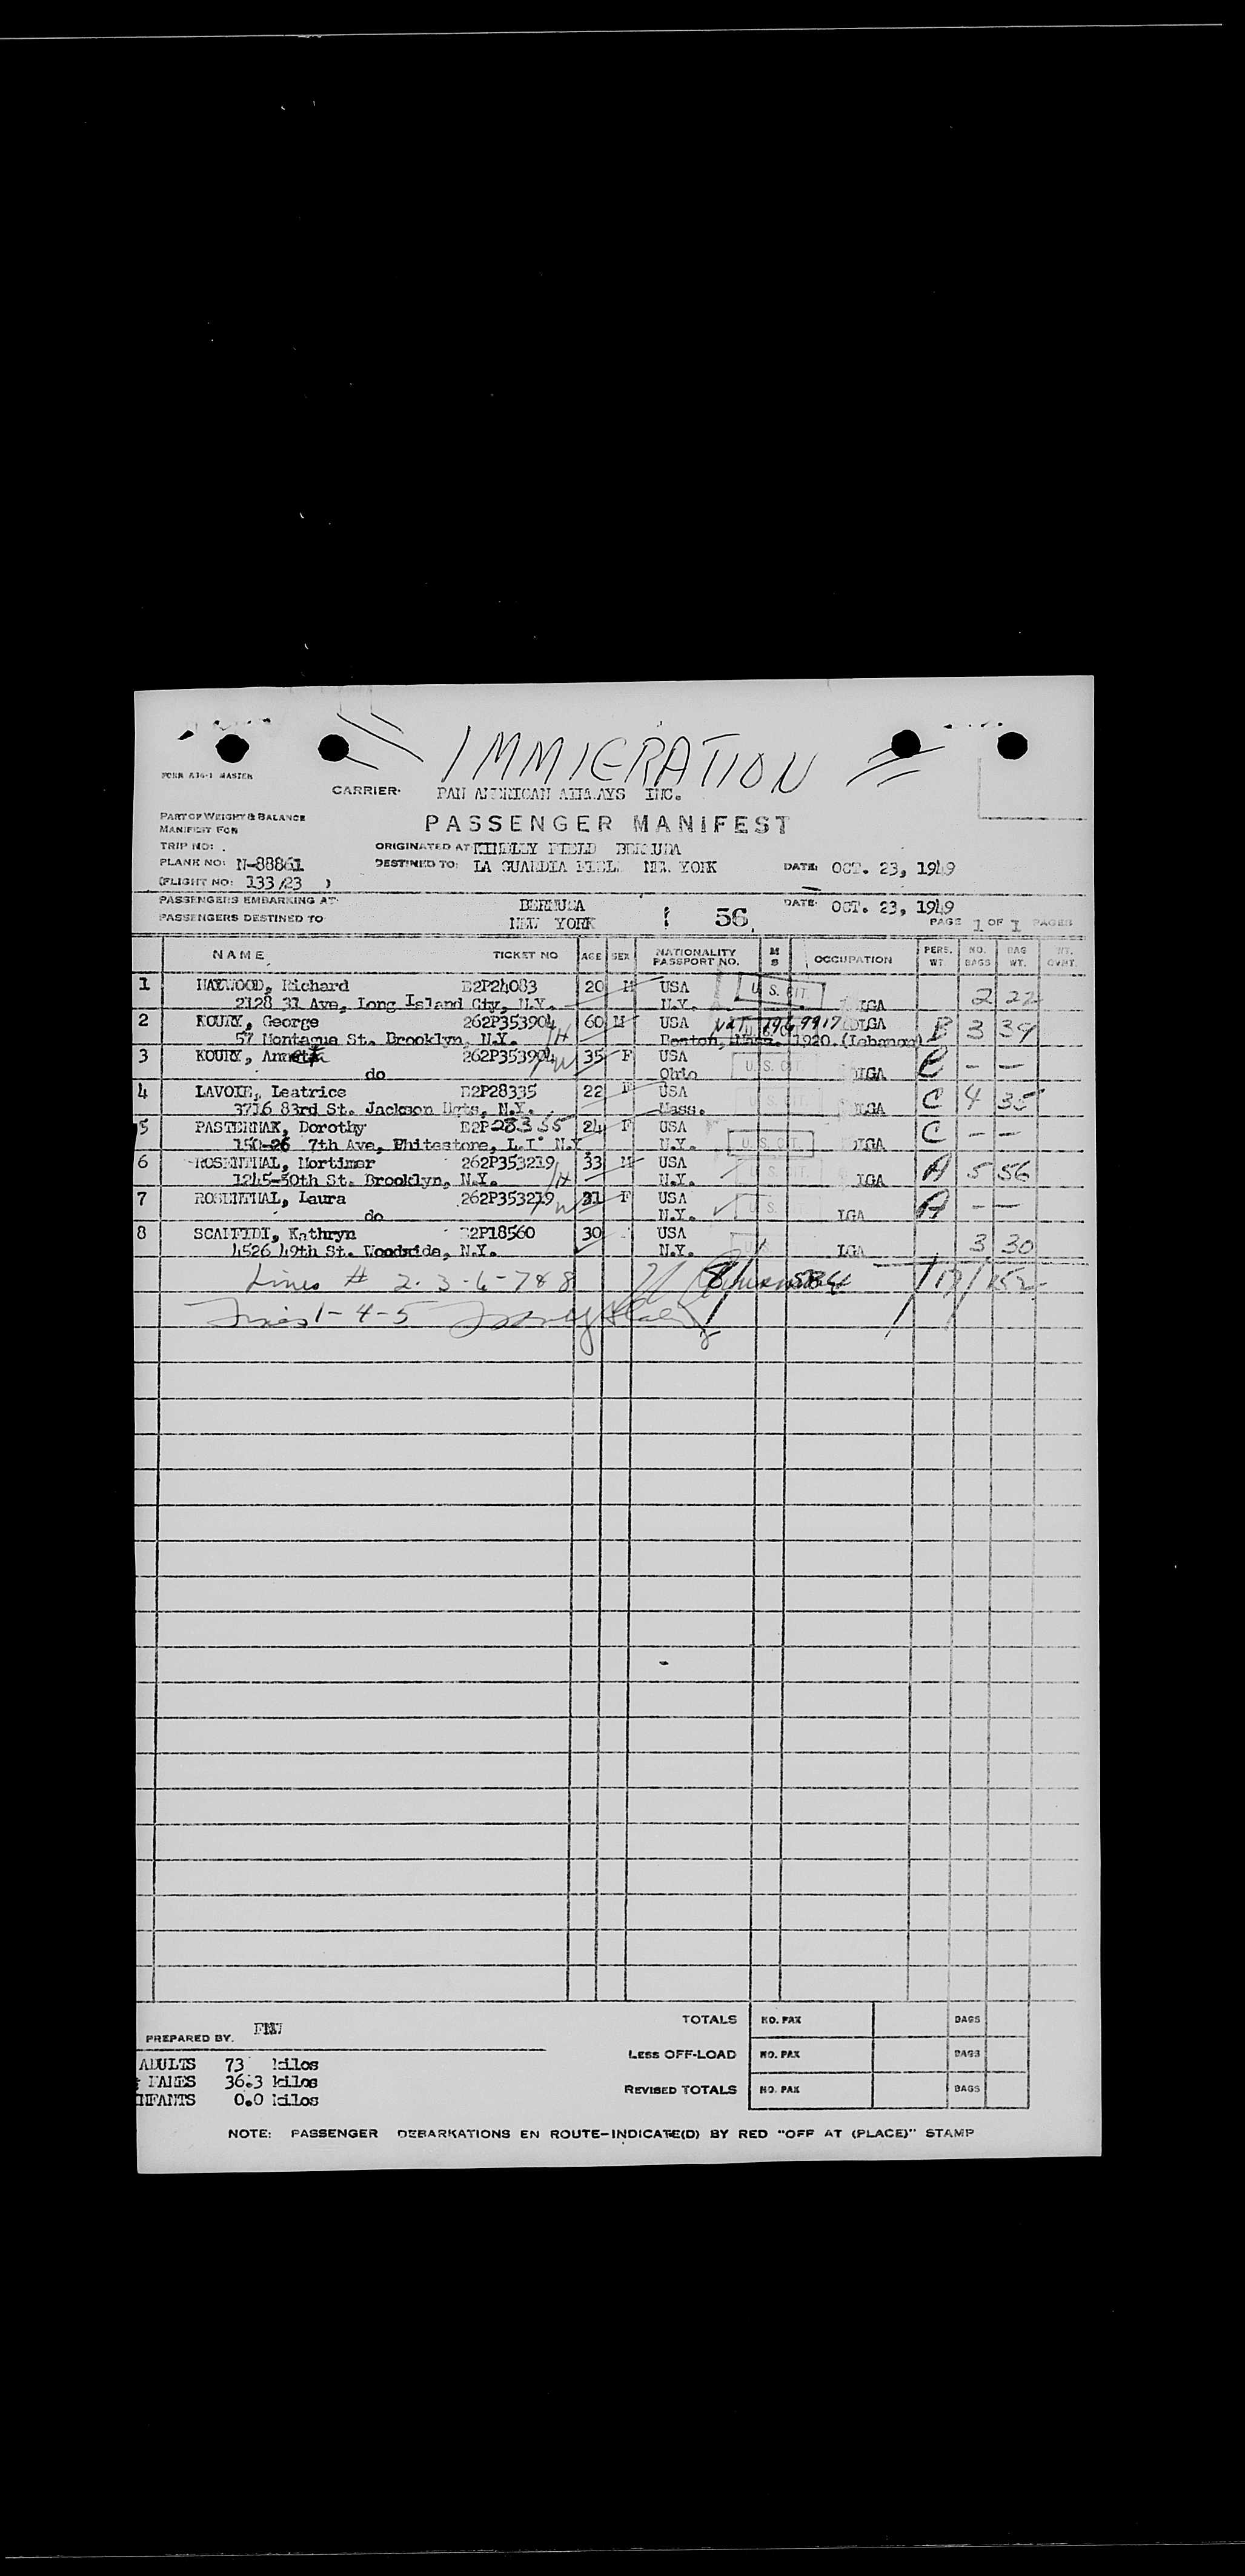 IMMIGRATION
FORM A36-1 MASTER
CARRIER: PAN AMERICAN AIRWAYS INC.
PART OF WEIGHT & BALANCE
MANIFEST FOR
PASSENGER MANIFEST
TRIP NO:
ORIGINATED AT KINDLEY FIELD BERMUDA
PLANE NO: N-88861
DESTINED TO: LA GUARDIA FIELD NEW YORK DATE: OCT. 23, 1949
(FLIGHT NO: 133/23 )
PASSENGERS EMBARKING AT: BERMUDA DATE: OCT. 23, 1949
PASSENGERS DESTINED TO NEW YORK 56 PAGE 1 OF 1 PAGES
NAME TICKET NO AGE SEX NATIONALITY PASSPORT NO. M S OCCUPATION PERS. WT. NO. BAGS BAG WT. WT. OVHT.
1 HAYWOOD, Richard B2P24083 20 M USA U.S. CIT. 2 22
2128 31 Ave, Long Island Cty, N.Y. N.Y. LGA
2 KOURY, George 262P353904 60 M USA NAT LGA B 3 39
57 Montague St. Brooklyn, N.Y. H Boston, Mass. 1920 (Lebanon)
3 KOURY, Annette 262P353904 W 35 F USA U.S. CIT C — —
do Ohio LGA
4 LAVOIE, Leatrice B2P28335 22 F USA C 4 35
3716 83rd St. Jackson Hgts, N.Y. Mass. LGA
5 PASTERNAK, Dorothy B2P28355 24 F USA C — —
150-26 7th Ave, Whitestone, L.I. N.Y N.Y. U.S. CIT. LGA
6 ROSENTHAL, Mortimer 262P353219 33 M USA A 5 56
1245-50th St. Brooklyn, N.Y. H N.Y. LGA
7 ROSENTHAL, Laura 262P353219 W 31 F USA A — —
do N.Y. LGA
8 SCALFIDI, Kathryn B2P18560 30 USA 3 30
4526 49th St. Woodside, N.Y. N.Y. LGA
Lines # 2-3-6-7&8 8/ 17/
Lines 1-4-5
TOTALS NO. PAX BAGS
PREPARED BY.
LESS OFF-LOAD NO. PAX BAGS
ADULTS 73 kilos
FARES 36.3 kilos
REVISED TOTALS NO. PAX BAGS
INFANTS 0.0 kilos
NOTE: PASSENGER DEBARKATIONS EN ROUTE-INDICATE(D) BY RED "OFF AT (PLACE)" STAMP